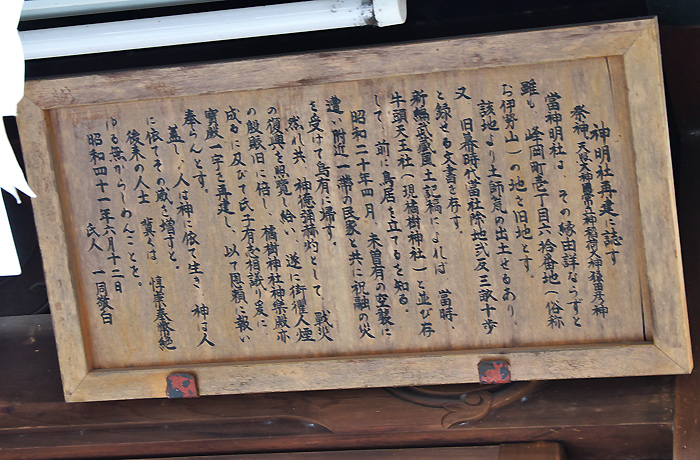 神明社再建に誌す
祭神 天照大神 國常立神 稲荷大神 猿田彦神
當神明社は、その縁由詳ならずと
雖も 峰岡町壱丁目六拾番地（俗称
お伊勢山）の地を旧地とす。
該地より土師器の出土せるあり、
又 旧幕時代當社除地弐反三畝十歩
と録せる文書を存す。
新編武蔵風土記稿によれば 當時、
牛頭天王社（現橘樹神社）と並び存
して、前に鳥居を立てるを知る。
昭和二十年四月、未曽有の空襲に
遭、附近一帯の民家と共に祝融の火
を受けて烏有に帰す。
然れ共、神徳彌犕灼として、戦火
の復興を照覧し給い 遂に街衢人煙
の殷賑旧に倍し、橘樹神社神楽殿亦
成るに及びて氏子有志相諮り茲に
寶殿一宇を再建し、以て恩頼に報い
奉らんとす。
蓋し、人は神に依て生き、神は人
に依てその威を増すと。
後来の人士 冀くは 惇崇奉斎絶
ゆる無からしめんことを。
昭和四十一年六月十二日
氏人 一同敬白